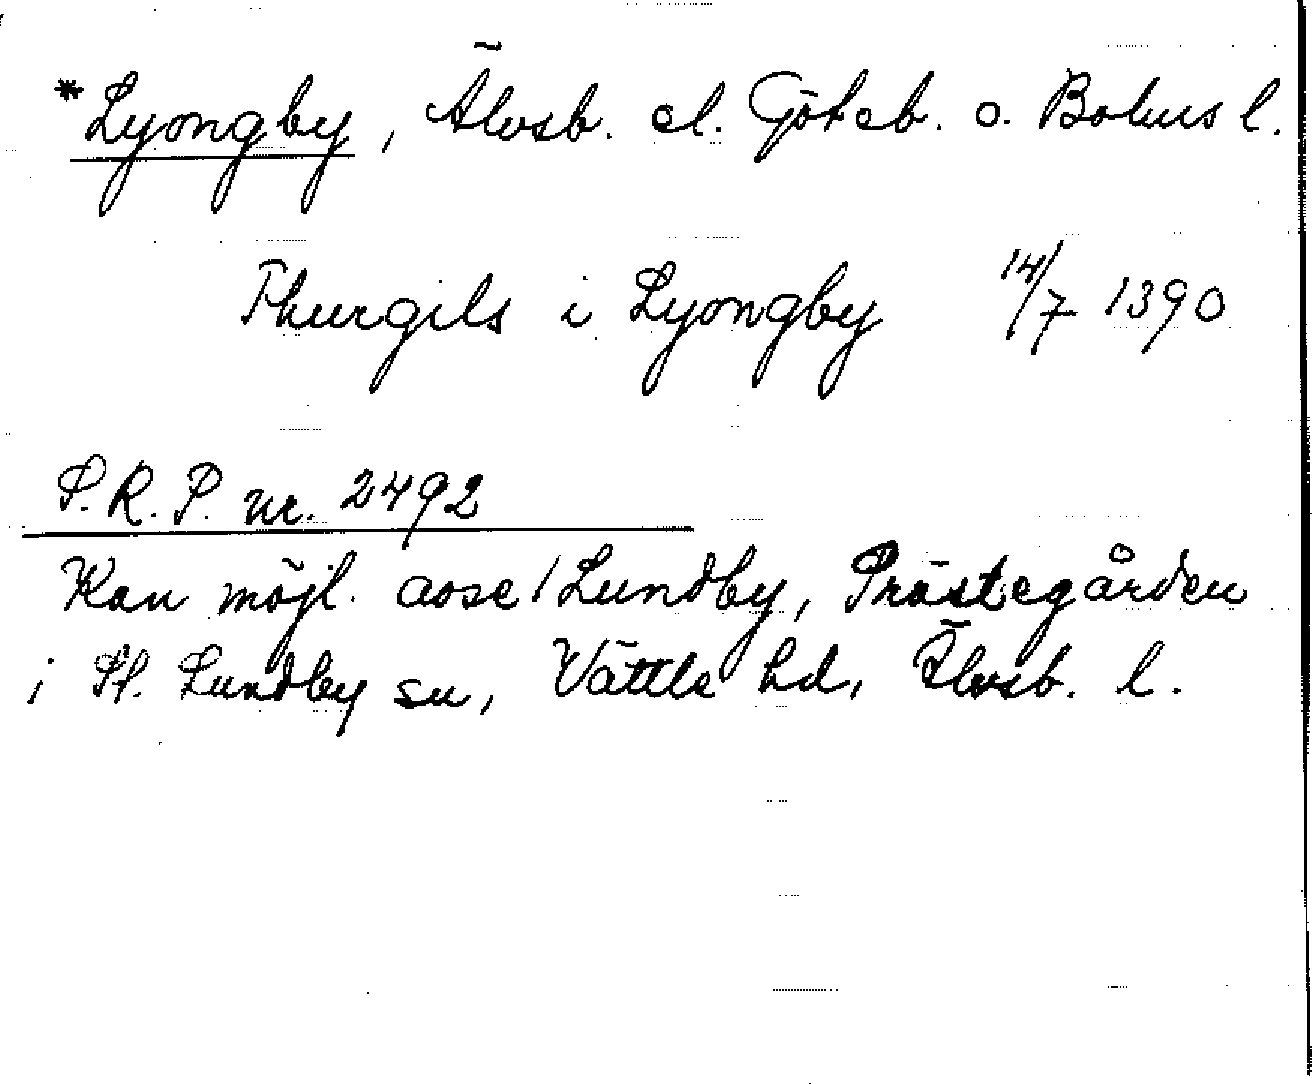 *Lyongby, Älvsb. el. Göteb. o. Bohus l.
Thurgils i Lyongby 14/7 1390
S.R.P. nr. 2492
Kan möjl. avse / Lundby, Prästegården
i St. Lundby sn, Vättle hd, Älvsb. l.